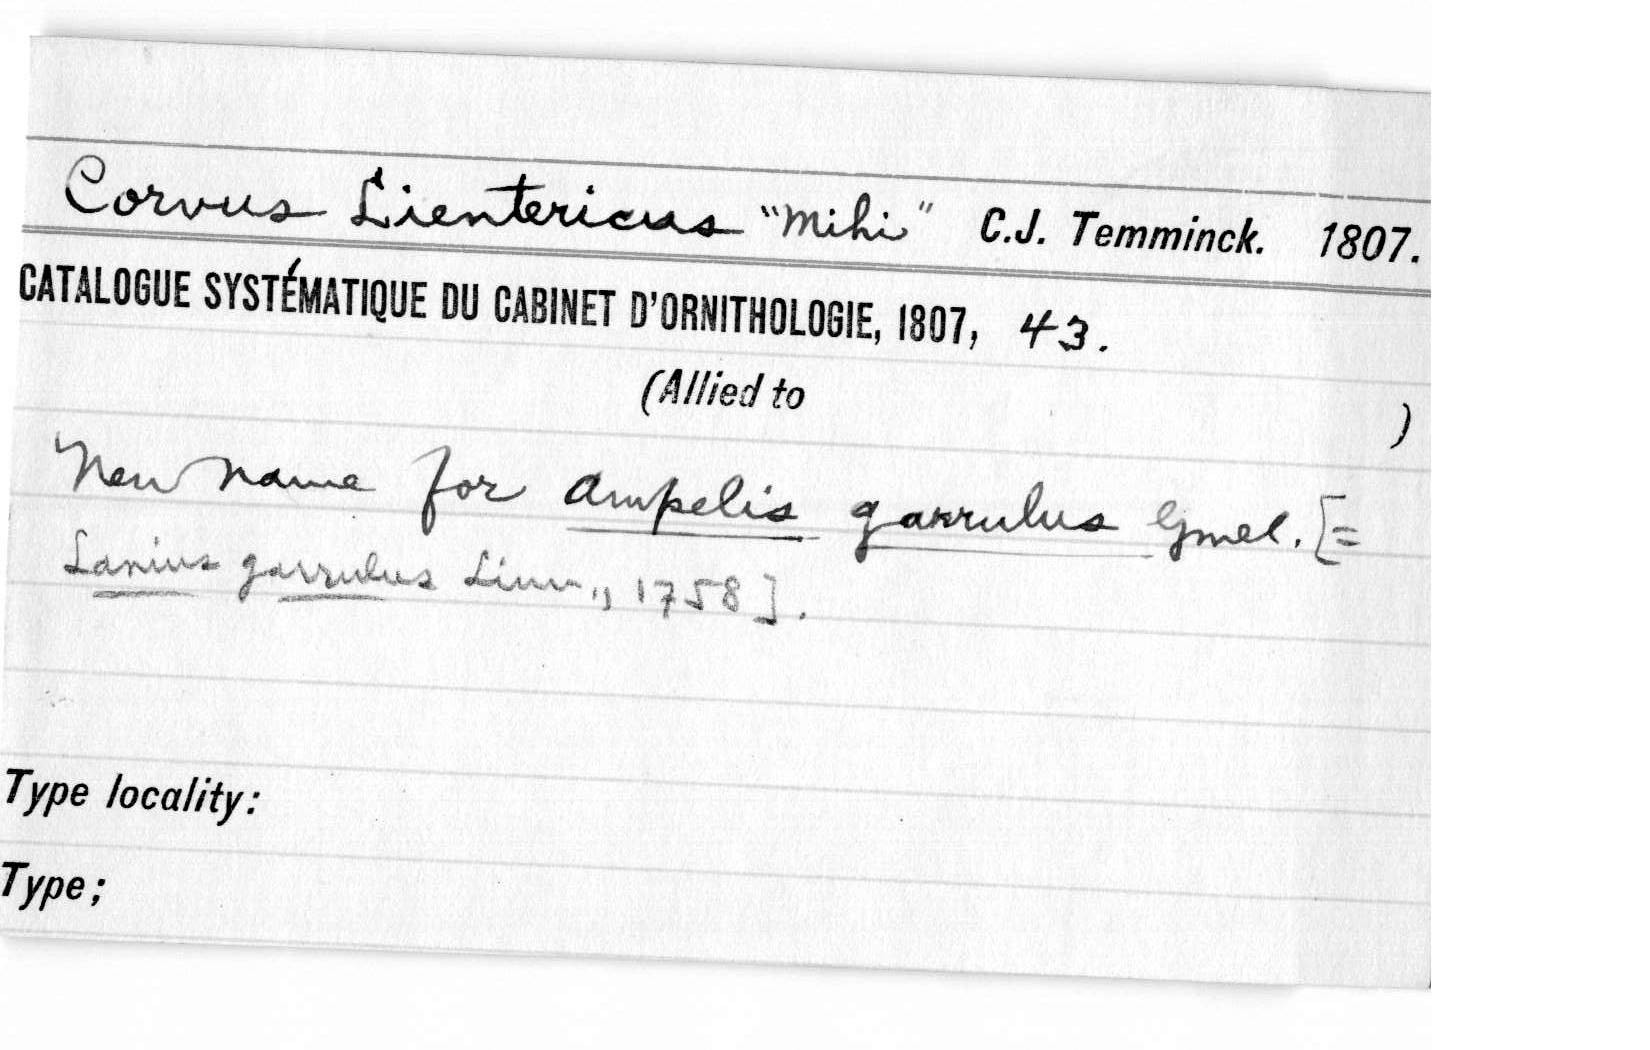 Corvus Lientericus "Mihi" C.J. Temminck. 1807.
CATALOGUE SYSTÉMATIQUE DU CABINET D'ORNITHOLOGIE, 1807, 43.
(Allied to )
New name for Ampelis garrulus Gmel. [=
Lanius garrulus Linn., 1758].
Type locality:
Type;